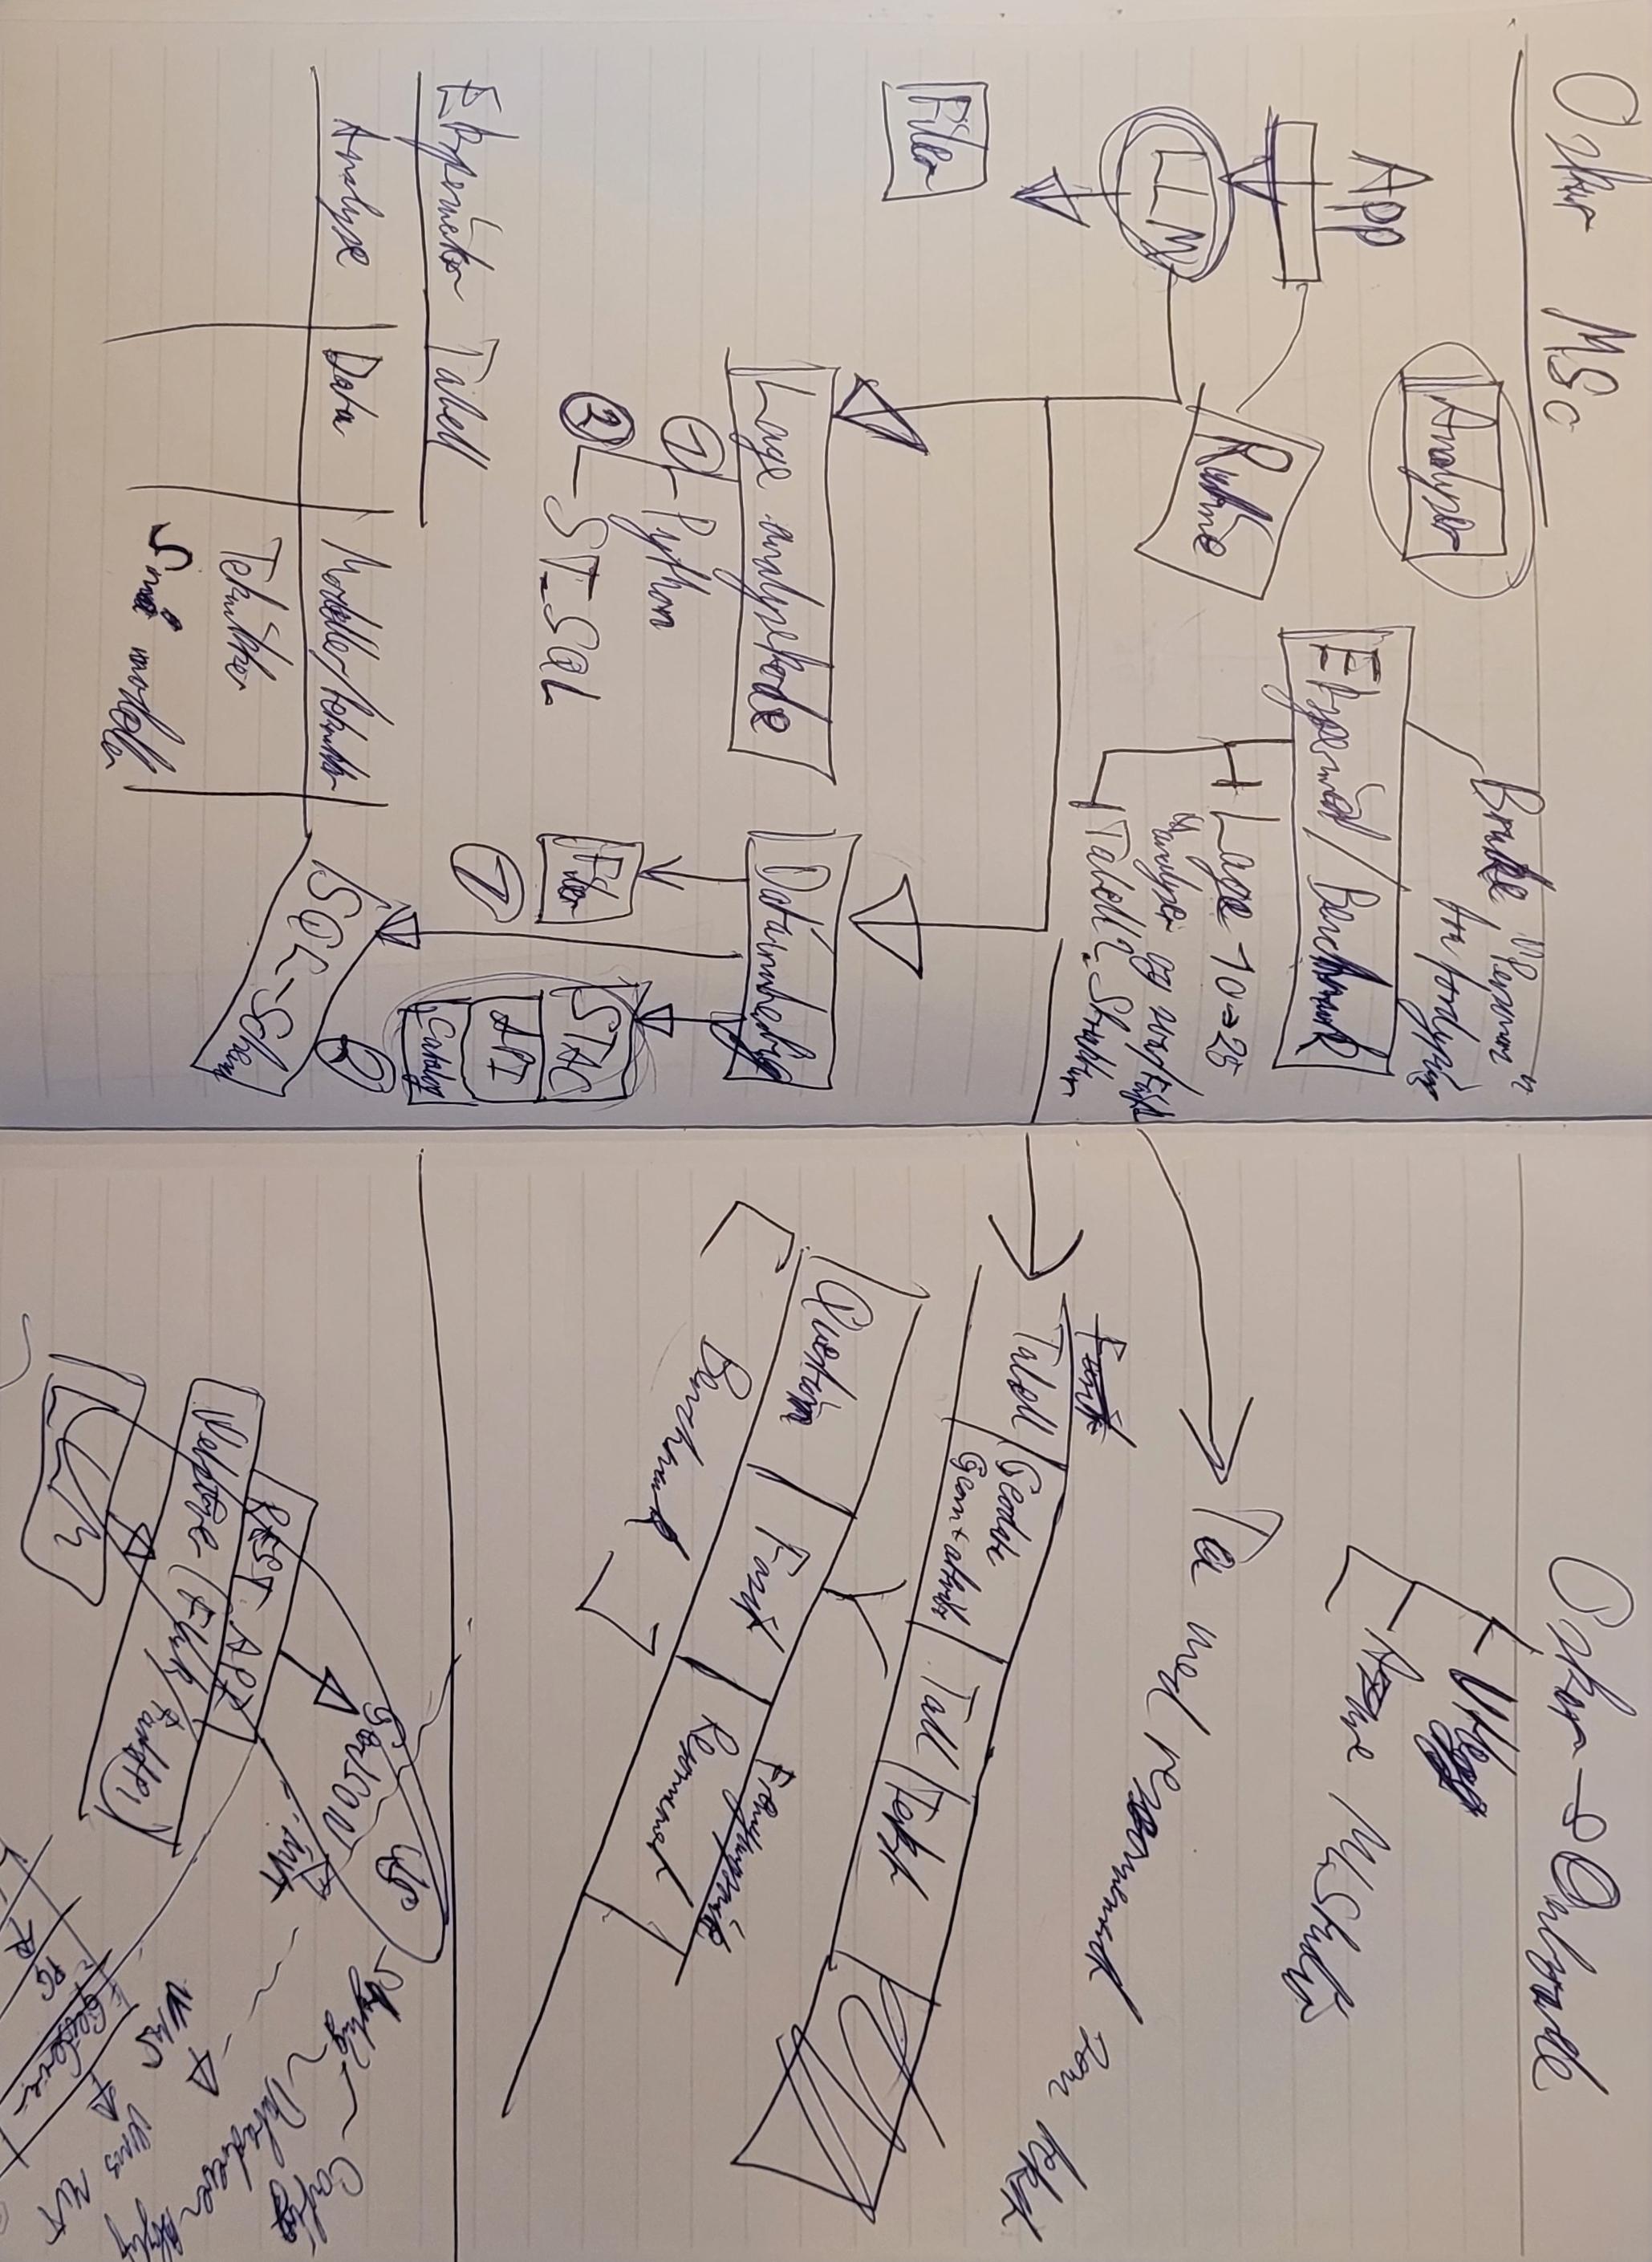 Oskar MSc
Analyser
Bruke "Personas"
fra fordyping
App
Eksperiment / Benchmark
Rutine
LLM
Lage 10 → 25
analyser og svar/Fasit
Tabell? Struktur
Filer
Lage analysekode
① Python
② ST_SQL
Datainnhenting
Filer
①
STAC
API
Catalog
②
SQL-Schema
Eksperimenter Tabell
Analyse Data Modeller/teknikker
Teknikker
Små modeller
Oskar → Onboarde
Utlegg
Azure ML Studio
Ta med resonnement som tekst
Fasit
Tabell
Geodata
Geom + attributter
Tall
Tekst
Question
Fasit
Resonnement
Benchmark
JS
GeoJSON
MVT
REST API
Webserver (Flask/FastAPI)
LLM
Styling
Config
Datadreven styling
WMS
WMS
MVT
GeoServer
PG